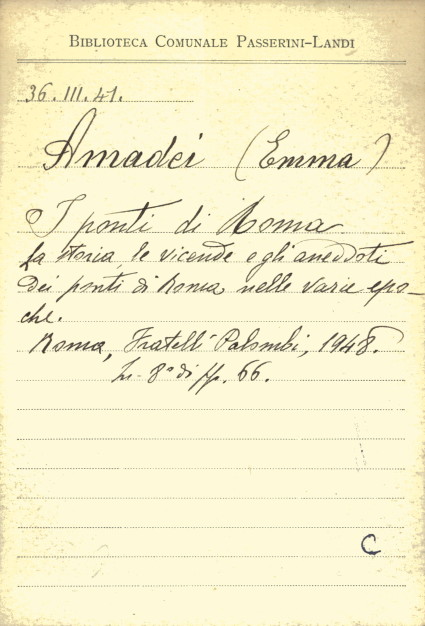 BIBLIOTECA COMUNALE PASSERINI-LANDI
36.III.41.
Amadei (Emma)
I ponti di Roma
la storia, le vicende e gli aneddoti
dei ponti di Roma nelle varie epo-
che.
Roma, Fratelli Palombi, 1948.
In-8° di pp. 66.
C